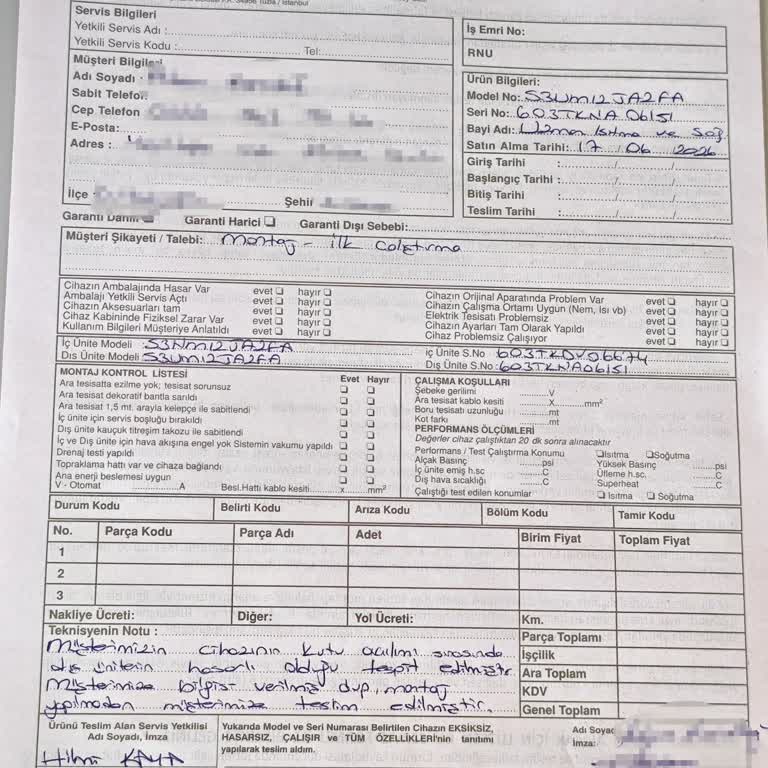 Servis Bilgileri
Yetkili Servis Adı :
Yetkili Servis Kodu : Tel:
Müşteri Bilgileri
Adı Soyadı
Sabit Telefon
Cep Telefon
E-Posta:
Adres :
İlçe Şehir
İş Emri No:
RNU
Ürün Bilgileri:
Model No: S3UM12JA2FA
Seri No: 603TKNA06151
Bayi Adı: Uzman Isıtma ve Soğ.
Satın Alma Tarihi: 17/06/2026
Giriş Tarihi :....../....../......
Başlangıç Tarihi :....../....../......
Bitiş Tarihi :....../....../......
Teslim Tarihi :....../....../......
Garanti Dahili Garanti Harici ❑ Garanti Dışı Sebebi:
Müşteri Şikayeti / Talebi: Montaj - İlk Calıştırma
Cihazın Ambalajında Hasar Var evet ❑ hayır ❑
Ambalajı Yetkili Servis Açtı evet ❑ hayır ❑
Cihazın Aksesuarları tam evet ❑ hayır ❑
Cihaz Kabininde Fiziksel Zarar Var evet ❑ hayır ❑
Kullanım Bilgileri Müşteriye Anlatıldı evet ❑ hayır ❑
Cihazın Orijinal Aparatında Problem Var evet ❑ hayır ❑
Cihazın Çalışma Ortamı Uygun (Nem, Isı vb) evet ❑ hayır ❑
Elektrik Tesisatı Problemsiz evet ❑ hayır ❑
Cihazın Ayarları Tam Olarak Yapıldı evet ❑ hayır ❑
Cihaz Problemsiz Çalışıyor evet ❑ hayır ❑
İç Ünite Modeli : S3NM12JA2FA iç Ünite S.No : 603TKDV06674
Dıs Ünite Modeli : S3UM12JA2FA Dış Ünite S.No: 603TKNA06151
MONTAJ KONTROL LİSTESİ Evet Hayır
Ara tesisatta ezilme yok; tesisat sorunsuz ❑ ❑
Ara tesisat dekoratif bantla sarıldı ❑ ❑
Ara tesisat 1,5 mt. arayla kelepçe ile sabitlendi ❑ ❑
İç ünite için servis boşluğu bırakıldı ❑ ❑
Dış ünite kauçuk titreşim takozu ile sabitlendi ❑ ❑
İç ve Dış ünite için hava akışına engel yok Sistemin vakumu yapıldı ❑ ❑
Drenaj testi yapıldı ❑ ❑
Topraklama hattı var ve cihaza bağlandı ❑ ❑
Ana enerji beslemesi uygun ❑ ❑
V - Otomat ..........A Besl.Hattı kablo kesiti....x....mm²
ÇALIŞMA KOŞULLARI
Şebeke gerilimi ..........V
Ara tesisat kablo kesiti ..........X..........mm²
Boru tesisatı uzunluğu ..........mt
Kot farkı ..........mt
PERFORMANS ÖLÇÜMLERİ
Değerler cihaz çalıştıktan 20 dk sonra alınacaktır
Performans / Test Çalıştırma Konumu ❑Isıtma ❑Soğutma
Alçak Basınç ..........psi Yüksek Basınç ......psi
İç ünite emiş h.sc ..........C Üfleme h.sc ..........C
Dış hava sıcaklığı ..........C Superheat ..........C
Çalıştığı test edilen konumlar ❑ Isıtma ❑ Soğutma
Durum Kodu Belirti Kodu Arıza Kodu Bölüm Kodu Tamir Kodu
No. Parça Kodu Parça Adı Adet Birim Fiyat Toplam Fiyat
1
2
3
Nakliye Ücreti: Diğer: Yol Ücreti: Km.
Teknisyenin Notu :
Müşterimizin cihazının kutu acılımı sırasında
dış ünitenin hasarlı olduğu tespit edilmiştir
Müşterimize bilgisi verilmiş olup, montaj
yapılmadan müşterimize teslim edilmiştir.
Parça Toplamı
İşçilik
Ara Toplam
KDV
Genel Toplam
Ürünü Teslim Alan Servis Yetkilisi
Adı Soyadı, İmza
Hilmi KAYA
Yukarıda Model ve Seri Numarası Belirtilen Cihazın EKSİKSİZ,
HASARSIZ, ÇALIŞIR ve TÜM ÖZELLİKLERİ'nin tanıtımı
yapılarak teslim aldım.
Adı Soyad
İmza: